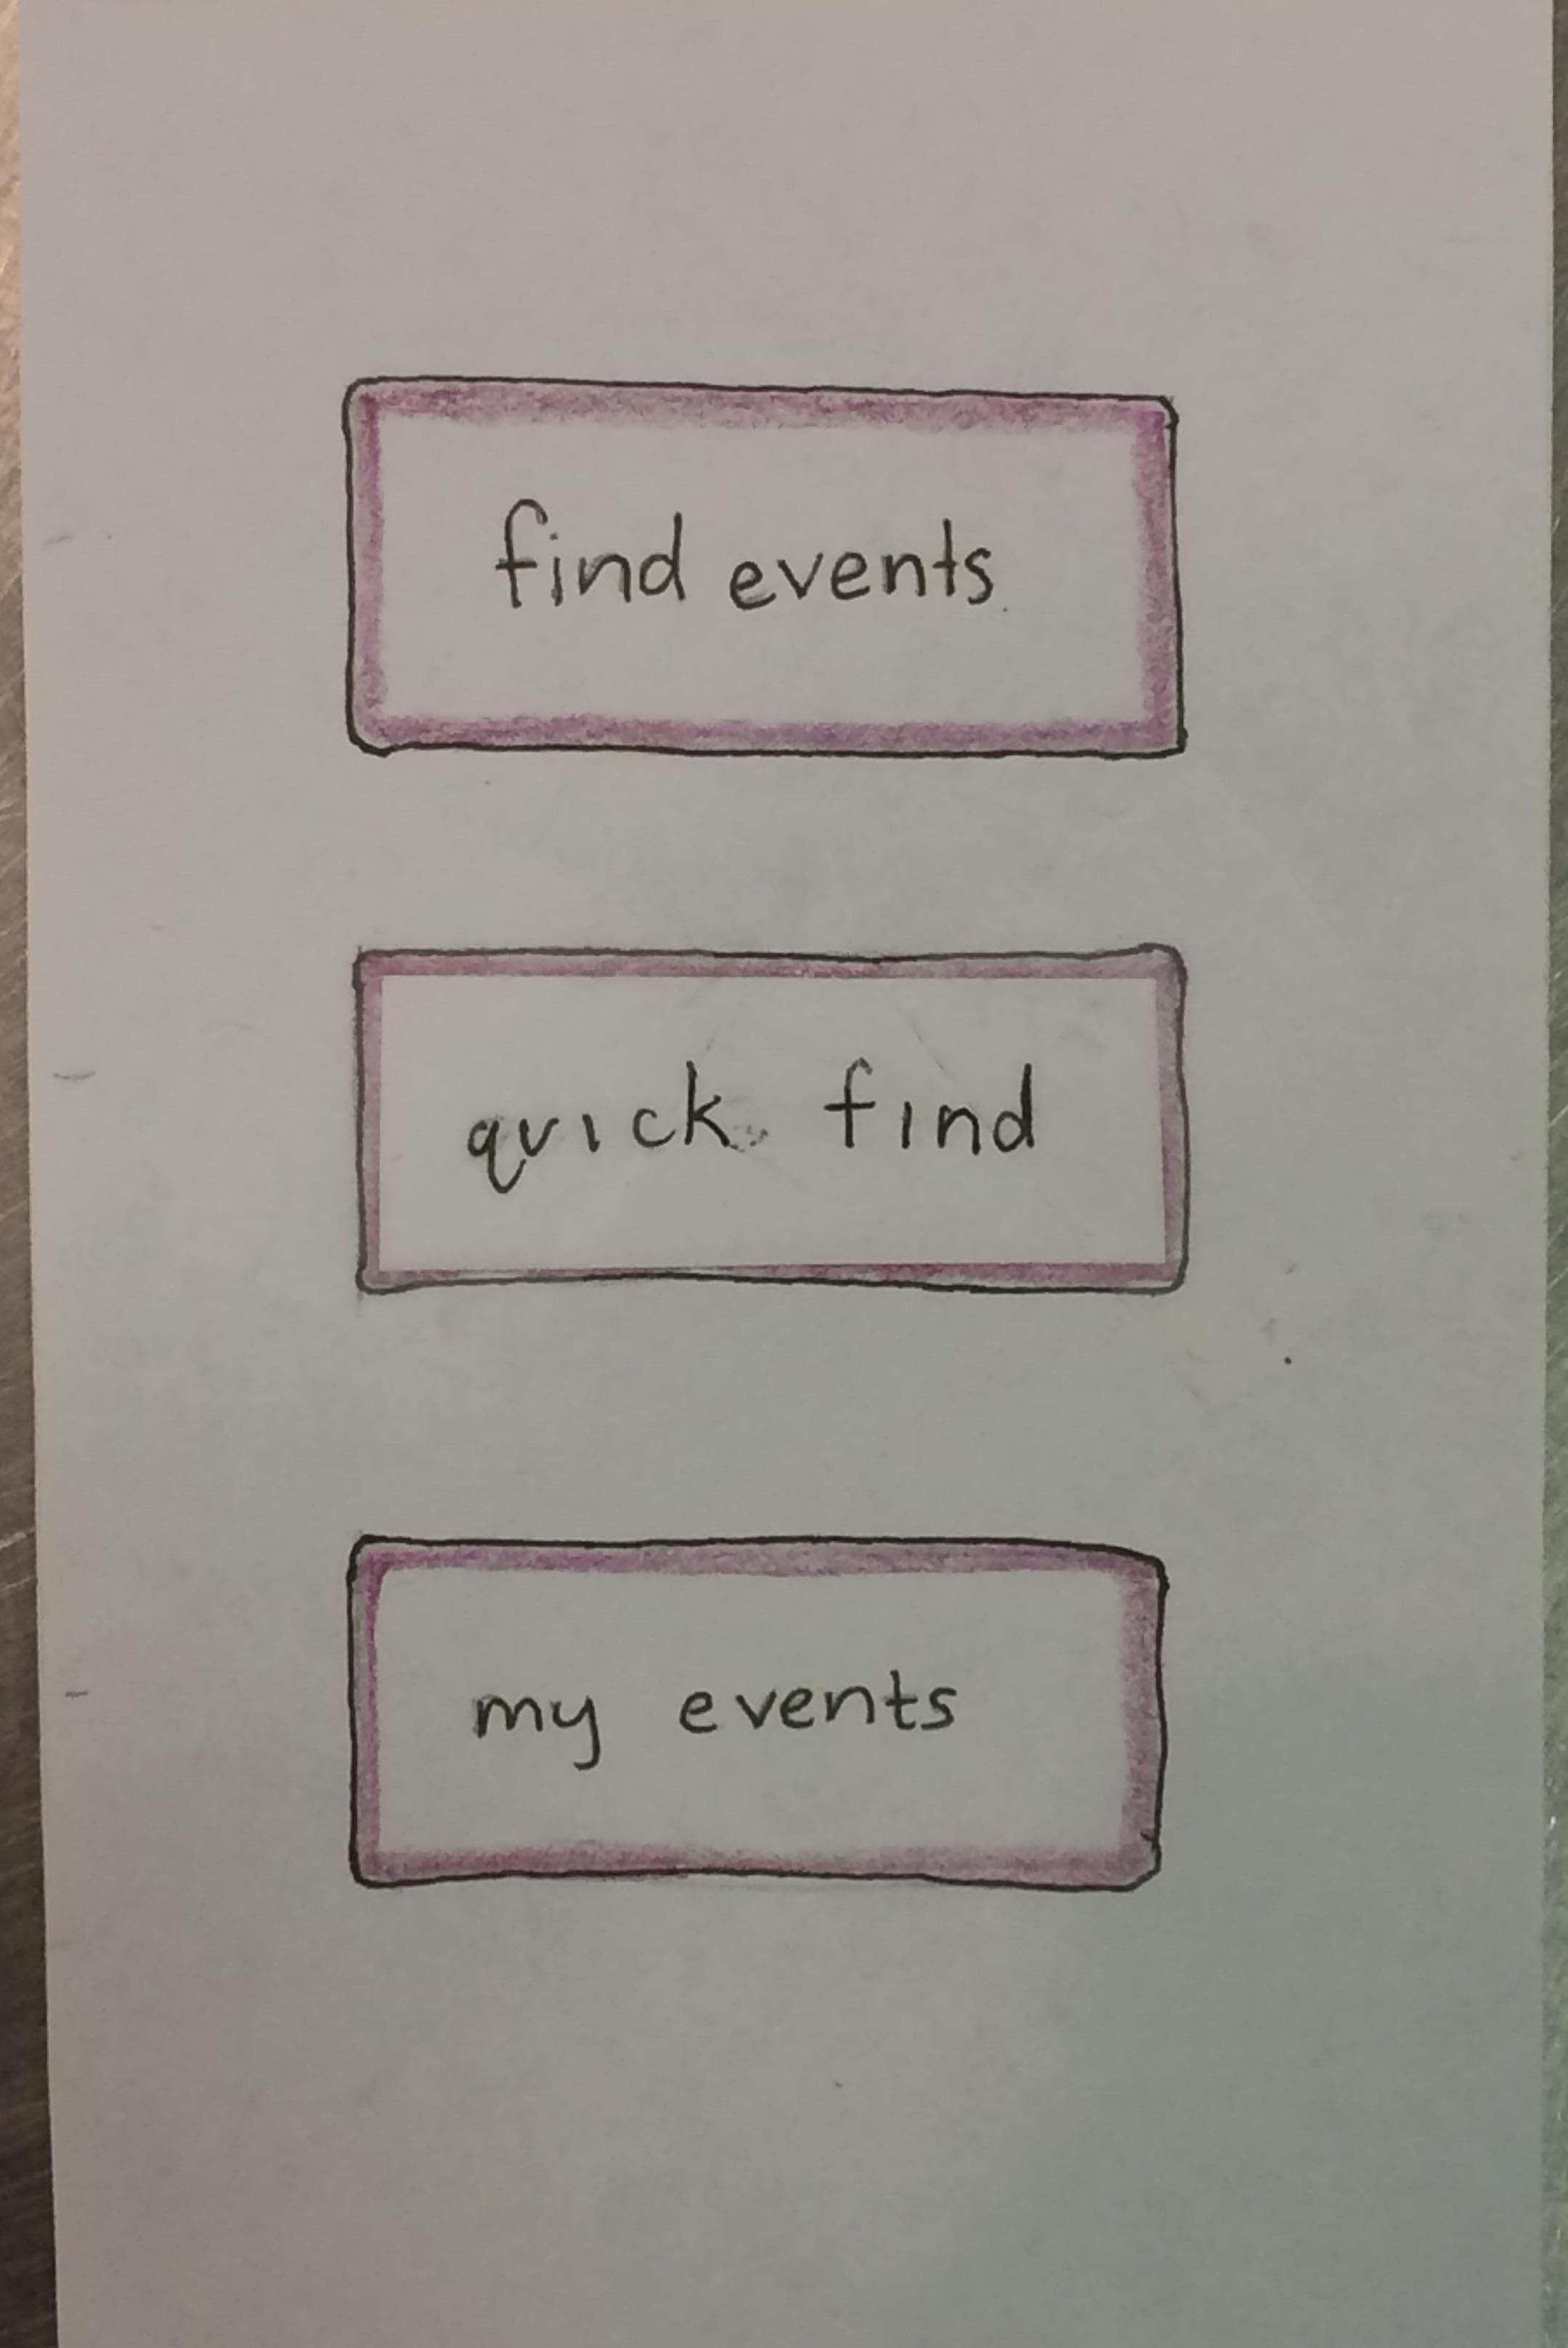 find events
quick find
my events